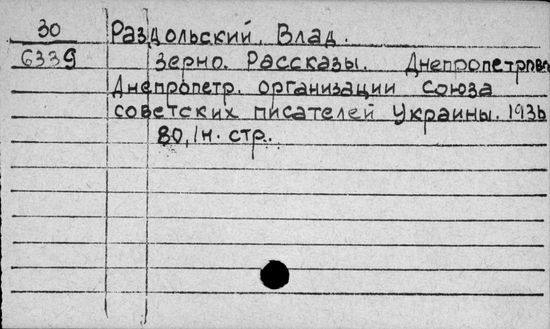 30 Раздольский, Влад.
6339 Зерно. Рассказы. Днепропетровск
Днепропетр. организации Союза
советских писателей Украины. 1936
80, 1н. стр.